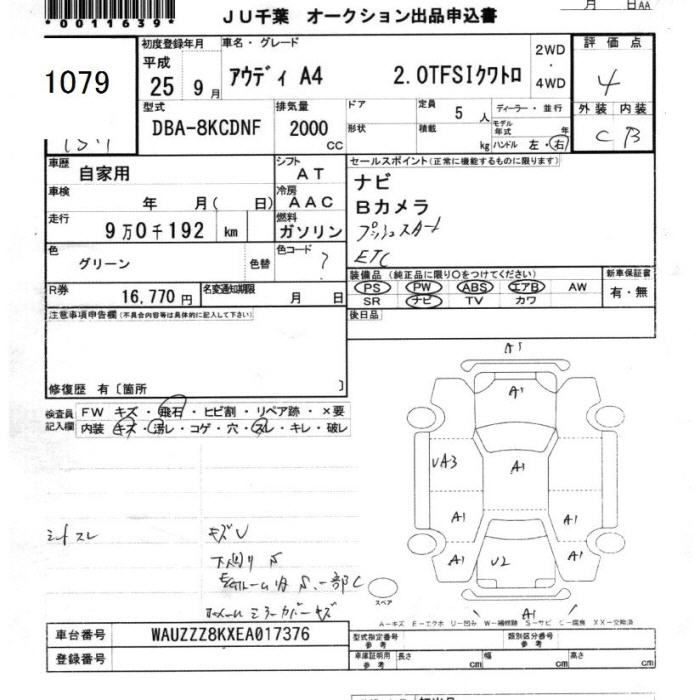 *0011639*
JU千葉 オークション出品申込書
月 日AA
1079
初度登録年月
平成
25 9月
車名・グレード
アウディ A4 2.0TFSIクワトロ
2WD
・
4WD
評価点
4
外装 内装
C B
型式
DBA-8KCDNF
排気量
2000
CC
ドア
形状
定員 5 人
積載 kg
ディーラー・並行
モデル年式 年
ハンドル 左・右
車歴
自家用
シフト
AT
車検
年 月( 日)
冷房
AAC
走行
9万0千192 km
燃料
ガソリン
色
グリーン
色替
色コード
?
R券
16,770円
名変通知期限
月 日
セールスポイント(正常に機能するものに限ります)
ナビ
Bカメラ
プッシュスタート
ETC
装備品(純正品に限り○をつけてください)
PS PW ABS エアB AW
SR ナビ TV カワ
新車保証書
有・無
後日品
注意事項申告欄(不具合内容等は具体的に記入して下さい)
修復歴 有〔箇所 〕
検査員記入欄
FW キズ・飛石・ヒビ割・リペア跡・×要
内装 キズ・汚レ・コゲ・穴・スレ・キレ・破レ
A1
A1
UA3
A1
A1
A1
A1
U2
A1
A1
シートスレ
キズU
下廻りS
スペア
A-キズ E-エクボ U-凹み W-補修跡 S-サビ C-腐食 XX-交換済
車台番号
WAUZZZ8KXEA017376
登録番号
型式指定番号
参考
類別区分番号
参考
車庫証明用
参考
長さ cm
幅 cm
高さ cm